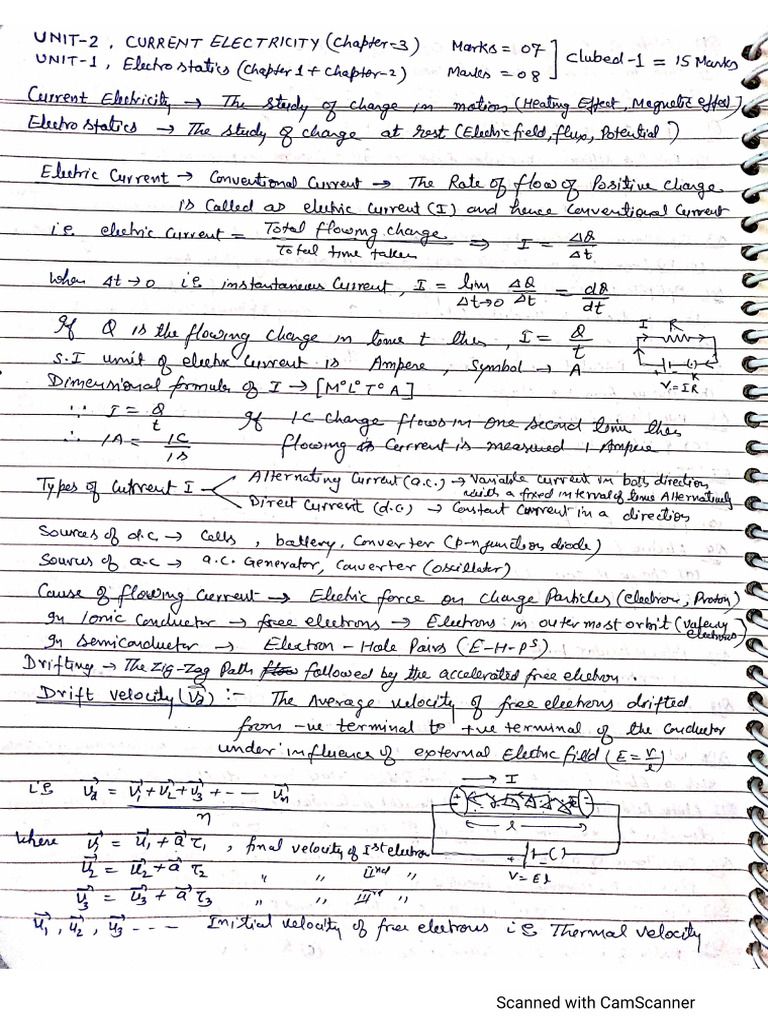 UNIT-2, CURRENT ELECTRICITY (Chapter-3) Marks = 07
UNIT-1, Electrostatics (Chapter 1 + Chapter-2) Marks = 08 ] Clubed-1 = 15 Marks
Current Electricity → The study of charge in motion (Heating Effect, Magnetic effect)
Electrostatics → The study of charge at rest (Electric field, flux, Potential)
Electric Current → Conventional Current → The Rate of flow of Positive Charge
is Called as electric current (I) and hence Conventional Current
i.e. electric current = Total flowing charge / Total time taken ⇒ I = ΔQ/Δt
When Δt→0 i.e. instantaneous current, I = lim Δt→0 ΔQ/Δt = dQ/dt
If Q is the flowing charge in time t then, I = Q/t
I R
S.I unit of electric current is Ampere, Symbol → A
+ - K
V = IR
Dimensional formula of I → [M⁰L⁰T⁰A]
∵ I = Q/t If 1C charge flows in one second time then
∴ 1A = 1C/1s flowing current is measured 1 Ampere
Types of Current I
Alternating Current (a.c.) → Variable current in both direction
with a fixed interval of time Alternatively
Direct Current (d.c) → Constant Current in a direction
Sources of d.c → Cells, battery, Converter (p-n junction diode)
Sources of a.c → a.c. Generator, Converter (oscillator)
Cause of flowing current → Electric force on charge Particles (electron, Proton)
In Ionic Conductor → free electrons → Electrons in outermost orbit (valency electrons)
In Semiconductor → Electron - Hole Pairs (E-H-Pˢ)
Drifting → The Zig-Zag Path followed by the accelerated free electron.
Drift velocity (v⃗d) :- The Average velocity of free electrons drifted
from -ve terminal to +ve terminal of the conductor
under influence of external Electric field (E = V/l)
i.e v⃗d = (v⃗1 + v⃗2 + v⃗3 + --- v⃗n)/n
→ I
← l →
+ -
V = El
where v⃗1 = u⃗1 + a⃗ τ1, final velocity of Ist electron
v⃗2 = u⃗2 + a⃗ τ2 " " IInd "
v⃗3 = u⃗3 + a⃗ τ3 " " IIIrd "
u⃗1, u⃗2, u⃗3 --- Initial velocity of free electrons i.e Thermal velocity
Scanned with CamScanner